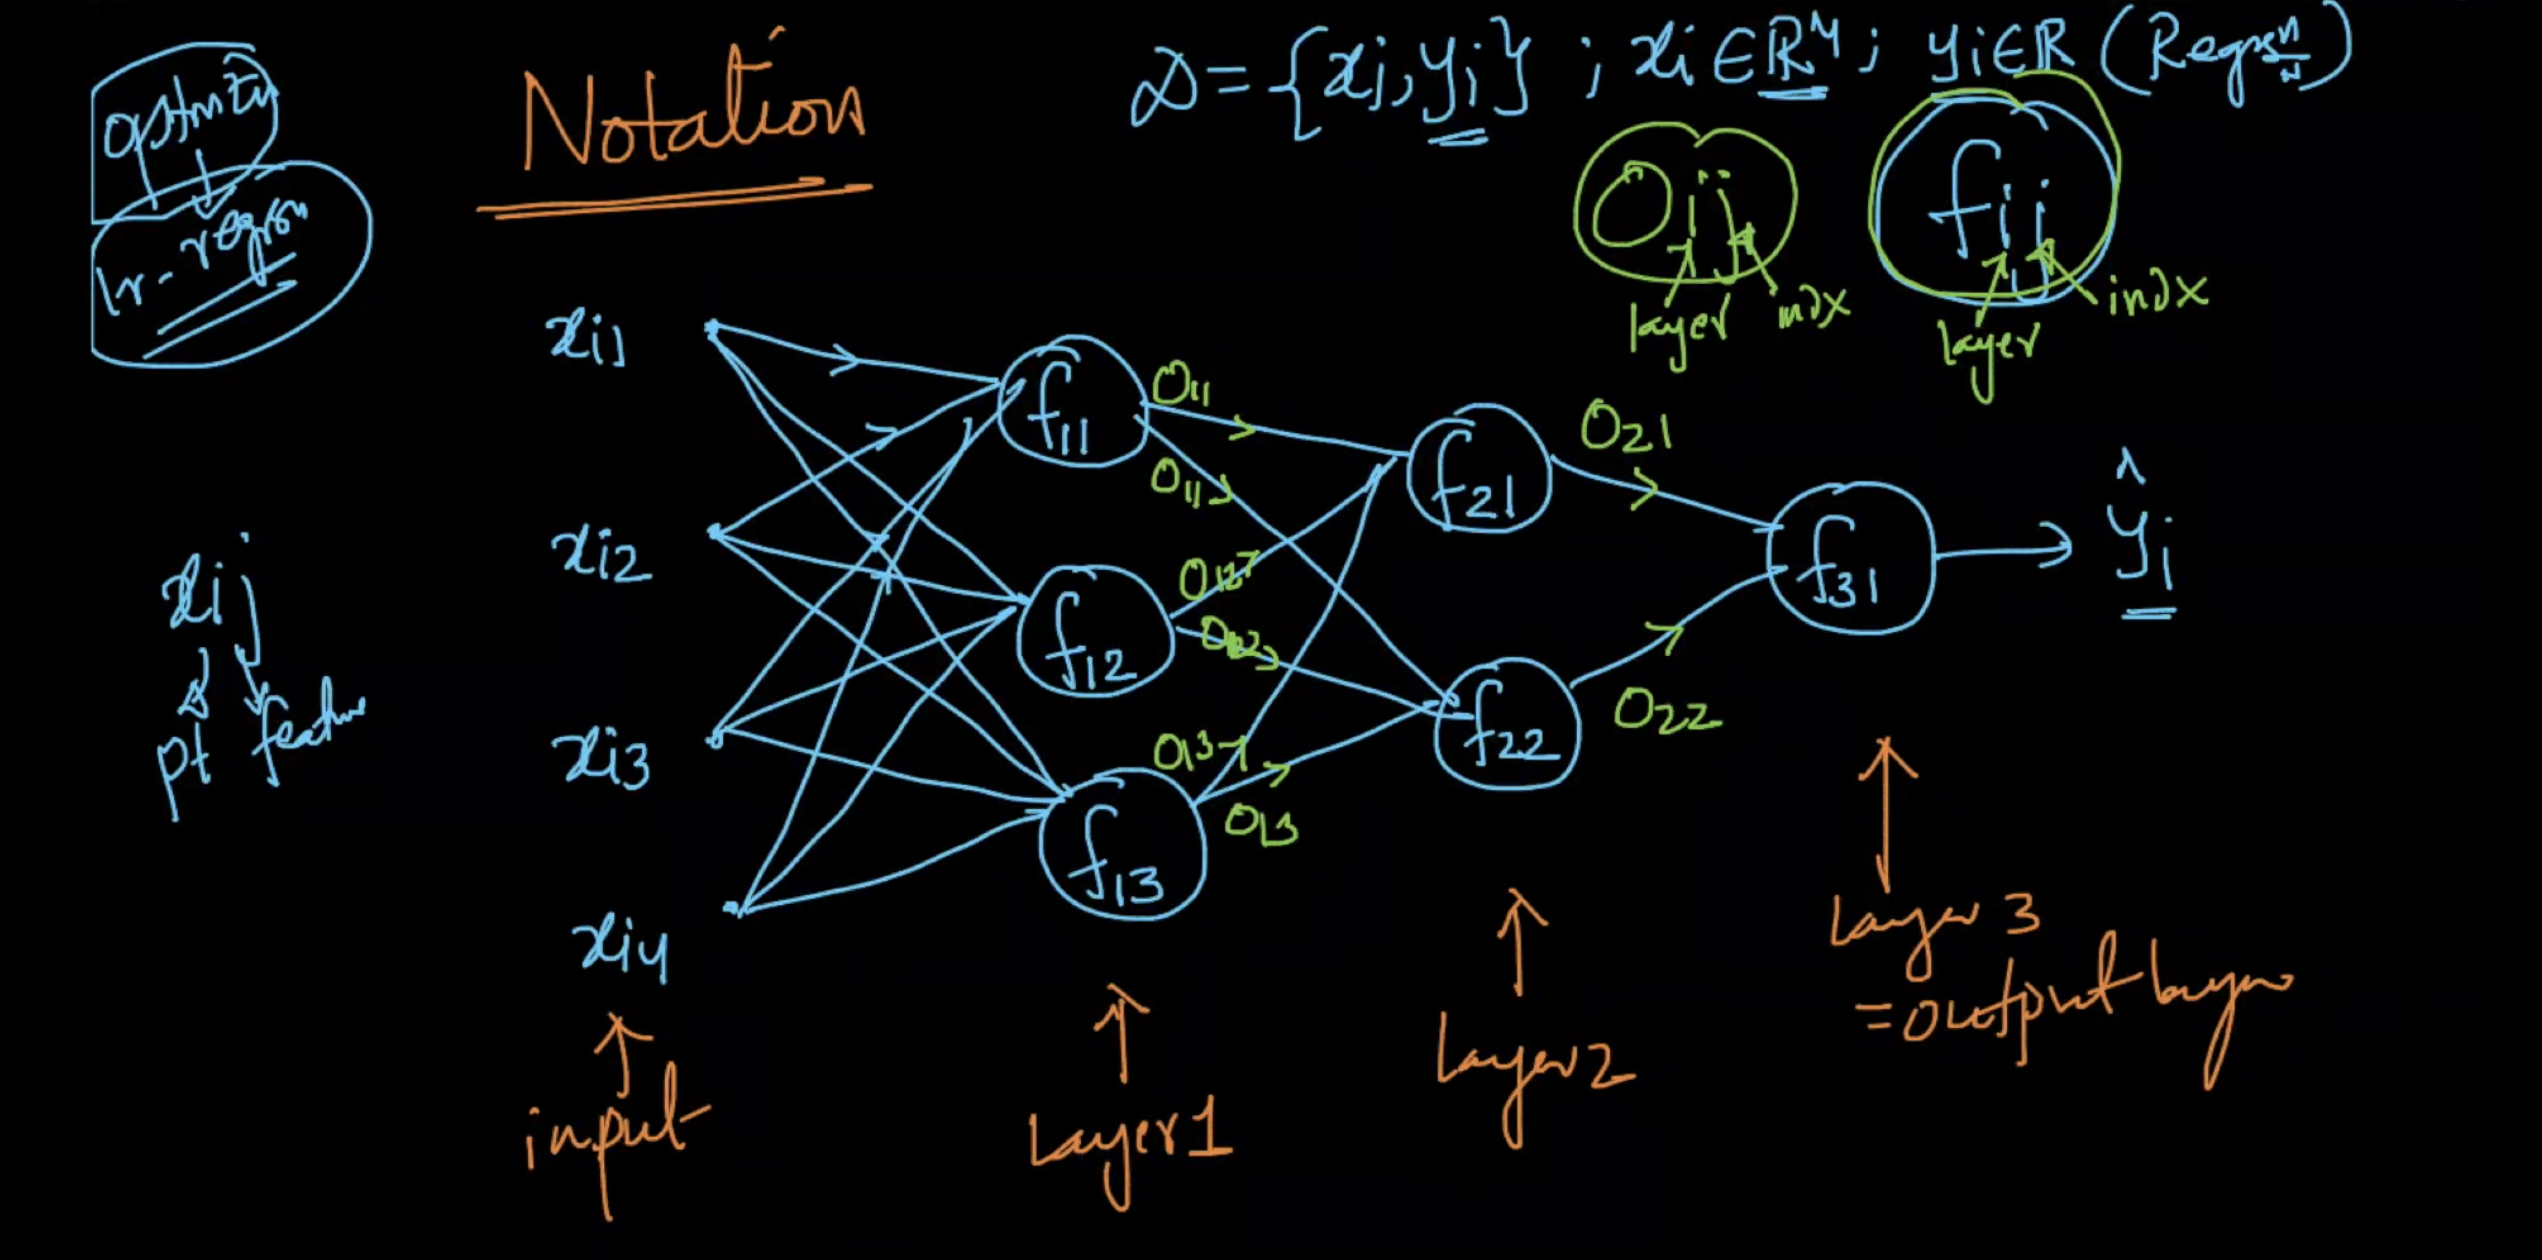 Notation
D = {xi, yi} ; xi ∈ R^4 ; yi ∈ R (Regrsn)
lr-regrsn
Oij
layer indx
fij
layer indx
xij
pt feature
xi1
xi2
xi3
xi4
f11
f12
f13
O11
O11
O12
O12
O13
O13
f21
f22
O21
O22
f31
ŷi
input
Layer 1
Layer 2
Layer 3
= output layer